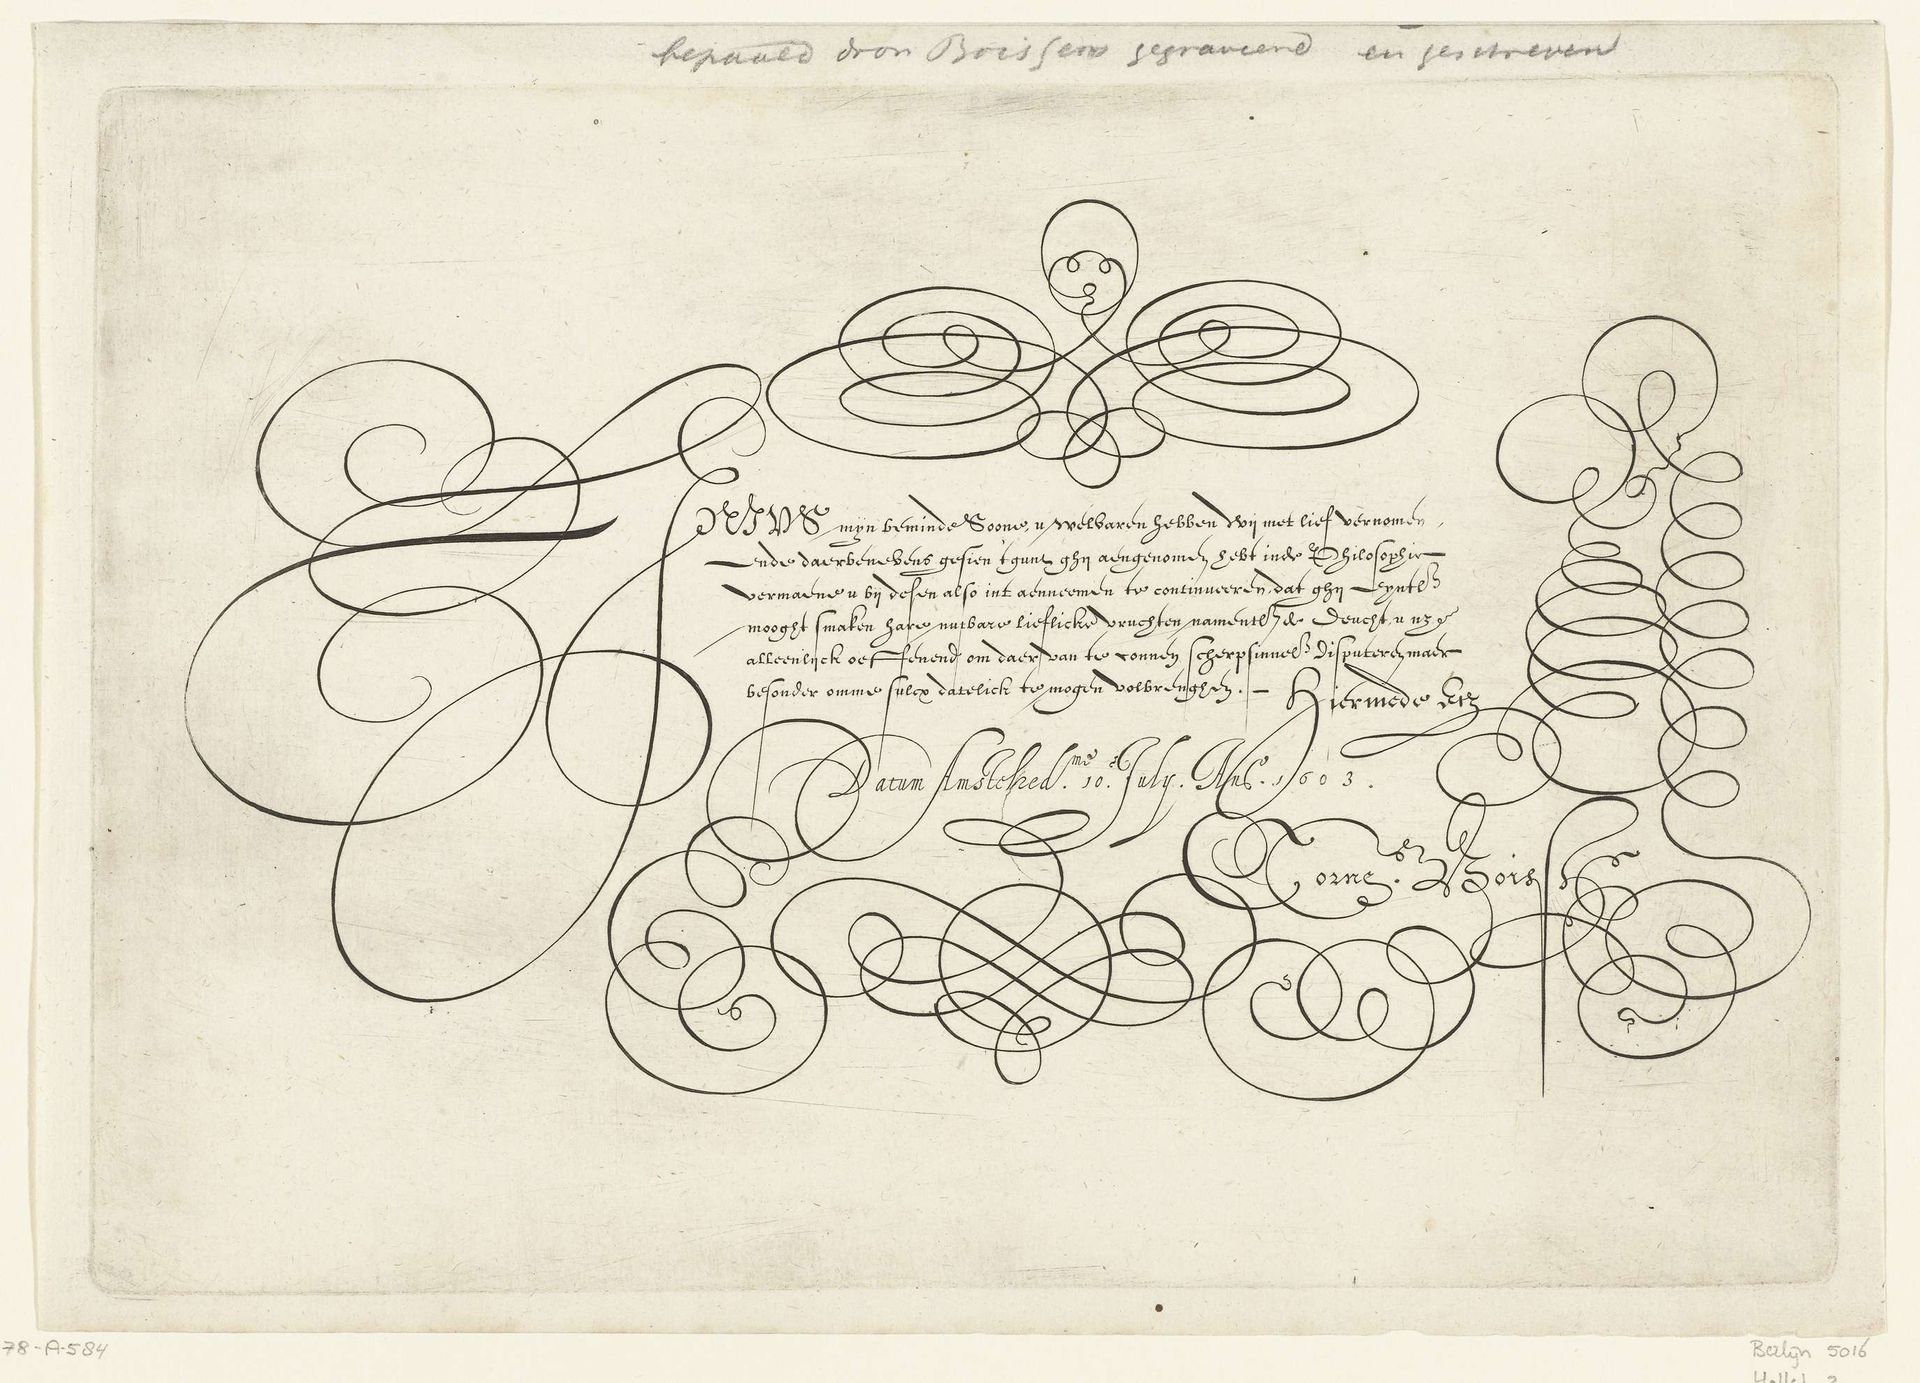 bepaald door Boissens gegraveerd en geschreven
mijn beminde Soone, u welvaren hebben wij met lief vernomen,
ende daerbenevens gesien tgunt ghij aengenomen hebt inde Philosophie
vermaene u bij desen also int aenneemen te continueeren, dat ghij
mooght smaken hare nutbare lieflicke vruchten, de Deucht, u
alleenlijck oeffenend om daer van te connen disputeren maer
besonder omme sulcx datelick te mogen volbrenghen. - Hiermede Etz
Datum Amstelred.me 10.en July. Anō. 1603.
Corne. Boiss
78-A-584
Berlijn 5016